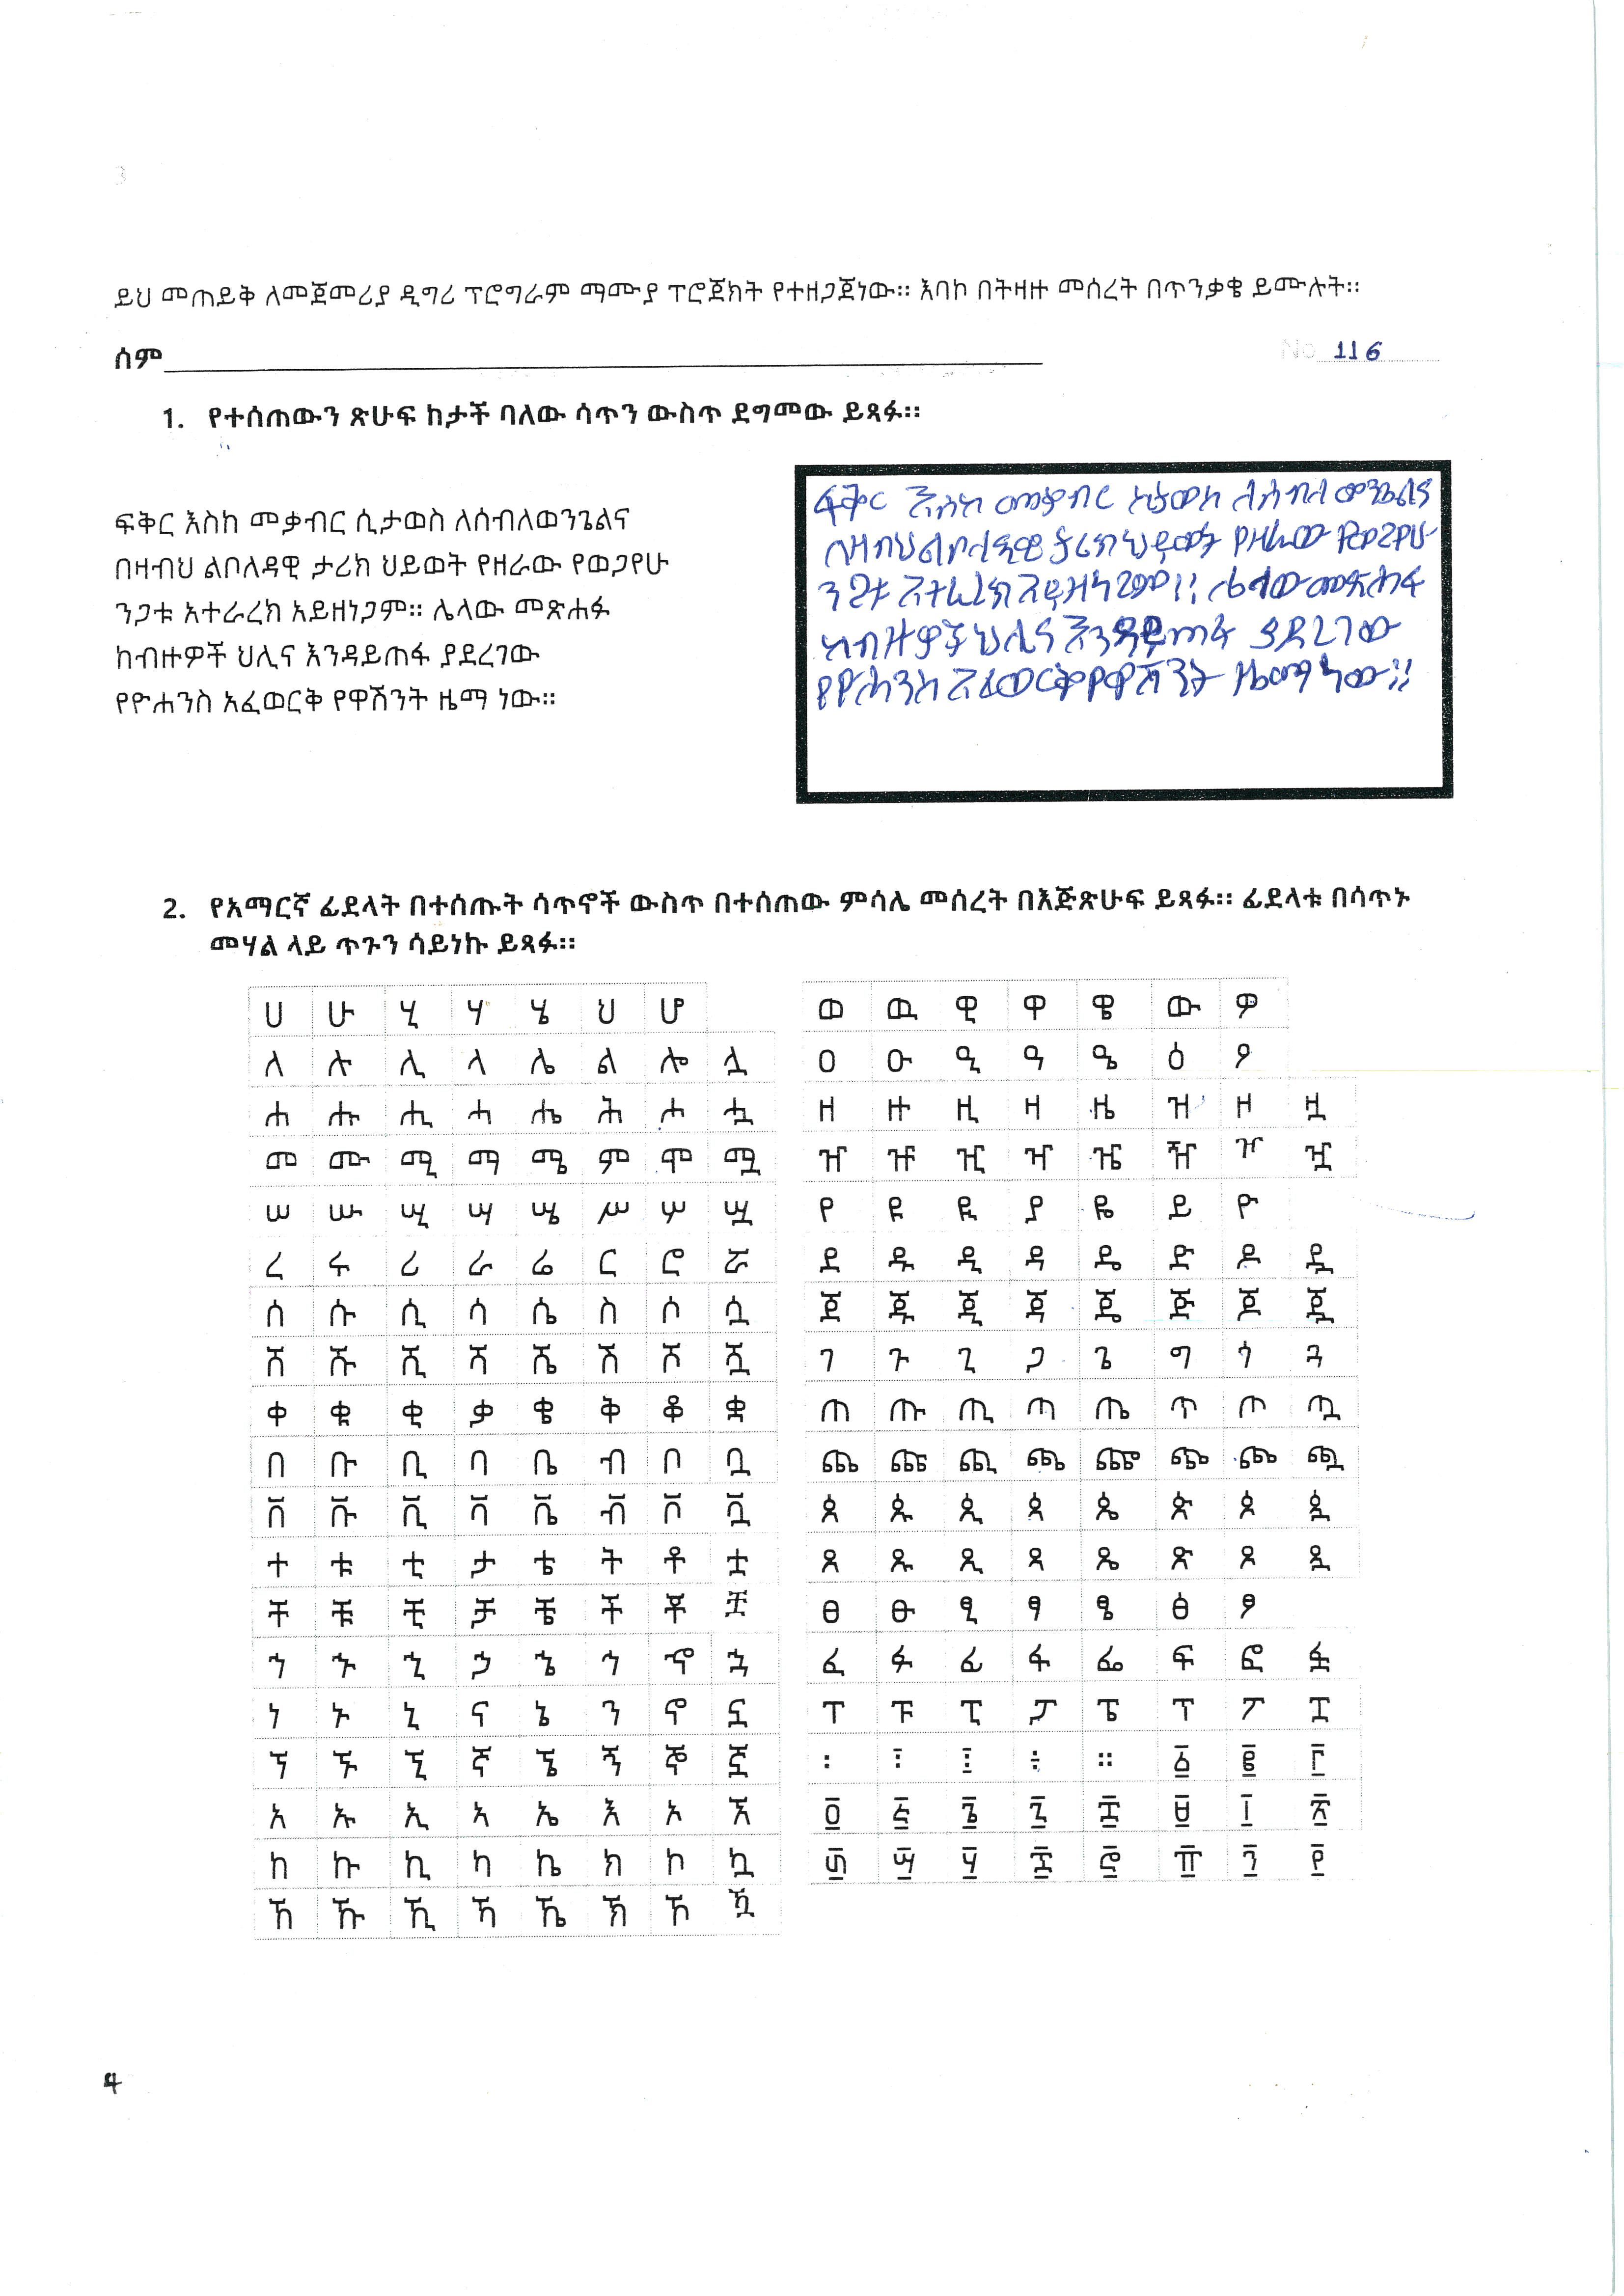 ይህ መጠይቅ ለመጀመሪያ ዲግሪ ፕሮግራም ማሙያ ፕሮጀክት የተዘጋጀነው። እባኮ በትዛዙ መሰረት በጥንቃቄ ይሙሉት።
ስም
No 116
1. የተሰጠውን ጽሁፍ ከታች ባለው ሳጥን ውስጥ ደግመው ይጻፉ።
ፍቅር እስከ መቃብር ሲታወስ ለሰብለወንጌልና
በዛብህ ልቦለዳዊ ታሪክ ህይወት የዘራው የወጋየሁ
ንጋቱ አተራረክ አይዘነጋም። ሌላው መጽሐፉ
ከብዙዎች ህሊና እንዳይጠፋ ያደረገው
የዮሐንስ አፈወርቅ የዋሽንት ዜማ ነው።
ፍቅር እስከ መቃብር ሲታወስ ለሰብለ ወንጌልና
በዛብህ ልቦለዳዊ ታሪክ ህይወት የዘራው የወጋየሁ
ንጋቱ አተራረክ አይዘነጋም። ሌላው መጽሐፉ
ከብዙዎች ህሊና እንዳይጠፋ ያደረገው
የዮሐንስ አፈወርቅ የዋሽንት ዜማ ነው።
2. የአማርኛ ፊደላት በተሰጡት ሳጥኖች ውስጥ በተሰጠው ምሳሌ መሰረት በእጅጽሁፍ ይጻፉ። ፊደላቱ በሳጥኑ
መሃል ላይ ጥጉን ሳይነኩ ይጻፉ።
ሀ ሁ ሂ ሃ ሄ ህ ሆ
ለ ሉ ሊ ላ ሌ ል ሎ ሏ
ሐ ሑ ሒ ሓ ሔ ሕ ሖ ሗ
መ ሙ ሚ ማ ሜ ም ሞ ሟ
ሠ ሡ ሢ ሣ ሤ ሥ ሦ ሧ
ረ ሩ ሪ ራ ሬ ር ሮ ሯ
ሰ ሱ ሲ ሳ ሴ ስ ሶ ሷ
ሸ ሹ ሺ ሻ ሼ ሽ ሾ ሿ
ቀ ቁ ቂ ቃ ቄ ቅ ቆ ቋ
በ ቡ ቢ ባ ቤ ብ ቦ ቧ
ቨ ቩ ቪ ቫ ቬ ቭ ቮ ቯ
ተ ቱ ቲ ታ ቴ ት ቶ ቷ
ቸ ቹ ቺ ቻ ቼ ች ቾ ቿ
ኀ ኁ ኂ ኃ ኄ ኅ ኆ ኋ
ነ ኑ ኒ ና ኔ ን ኖ ኗ
ኘ ኙ ኚ ኛ ኜ ኝ ኞ ኟ
አ ኡ ኢ ኣ ኤ እ ኦ ኧ
ከ ኩ ኪ ካ ኬ ክ ኮ ኳ
ኸ ኹ ኺ ኻ ኼ ኽ ኾ ዃ
ወ ዉ ዊ ዋ ዌ ው ዎ
ዐ ዑ ዒ ዓ ዔ ዕ ዖ
ዘ ዙ ዚ ዛ ዜ ዝ ዞ ዟ
ዠ ዡ ዢ ዣ ዤ ዥ ዦ ዧ
የ ዩ ዪ ያ ዬ ይ ዮ
ደ ዱ ዲ ዳ ዴ ድ ዶ ዷ
ጀ ጁ ጂ ጃ ጄ ጅ ጆ ጇ
ገ ጉ ጊ ጋ ጌ ግ ጎ ጓ
ጠ ጡ ጢ ጣ ጤ ጥ ጦ ጧ
ጨ ጩ ጪ ጫ ጬ ጭ ጮ ጯ
ጰ ጱ ጲ ጳ ጴ ጵ ጶ ጷ
ጸ ጹ ጺ ጻ ጼ ጽ ጾ ጿ
ፀ ፁ ፂ ፃ ፄ ፅ ፆ
ፈ ፉ ፊ ፋ ፌ ፍ ፎ ፏ
ፐ ፑ ፒ ፓ ፔ ፕ ፖ ፗ
፡ ፧ ፤ ፥ ። ፩ ፪ ፫
፬ ፭ ፮ ፯ ፰ ፱ ፲ ፳
፴ ፵ ፶ ፷ ፸ ፹ ፺ ፻
4